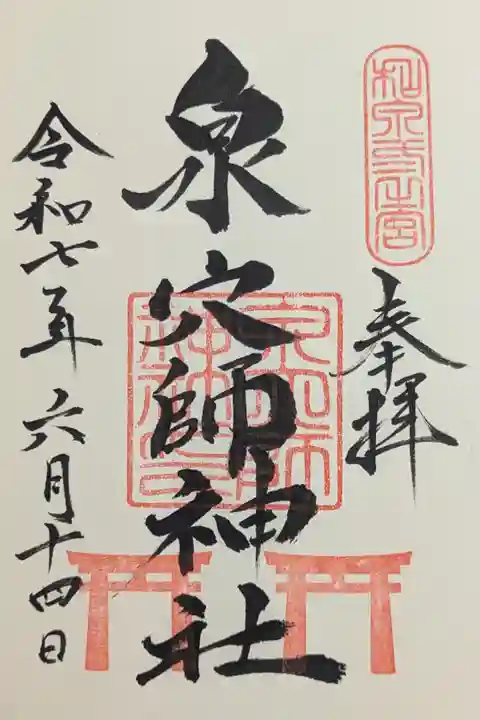 奉拝
泉穴師神社
泉穴師
神社印
令和七年 六月十四日